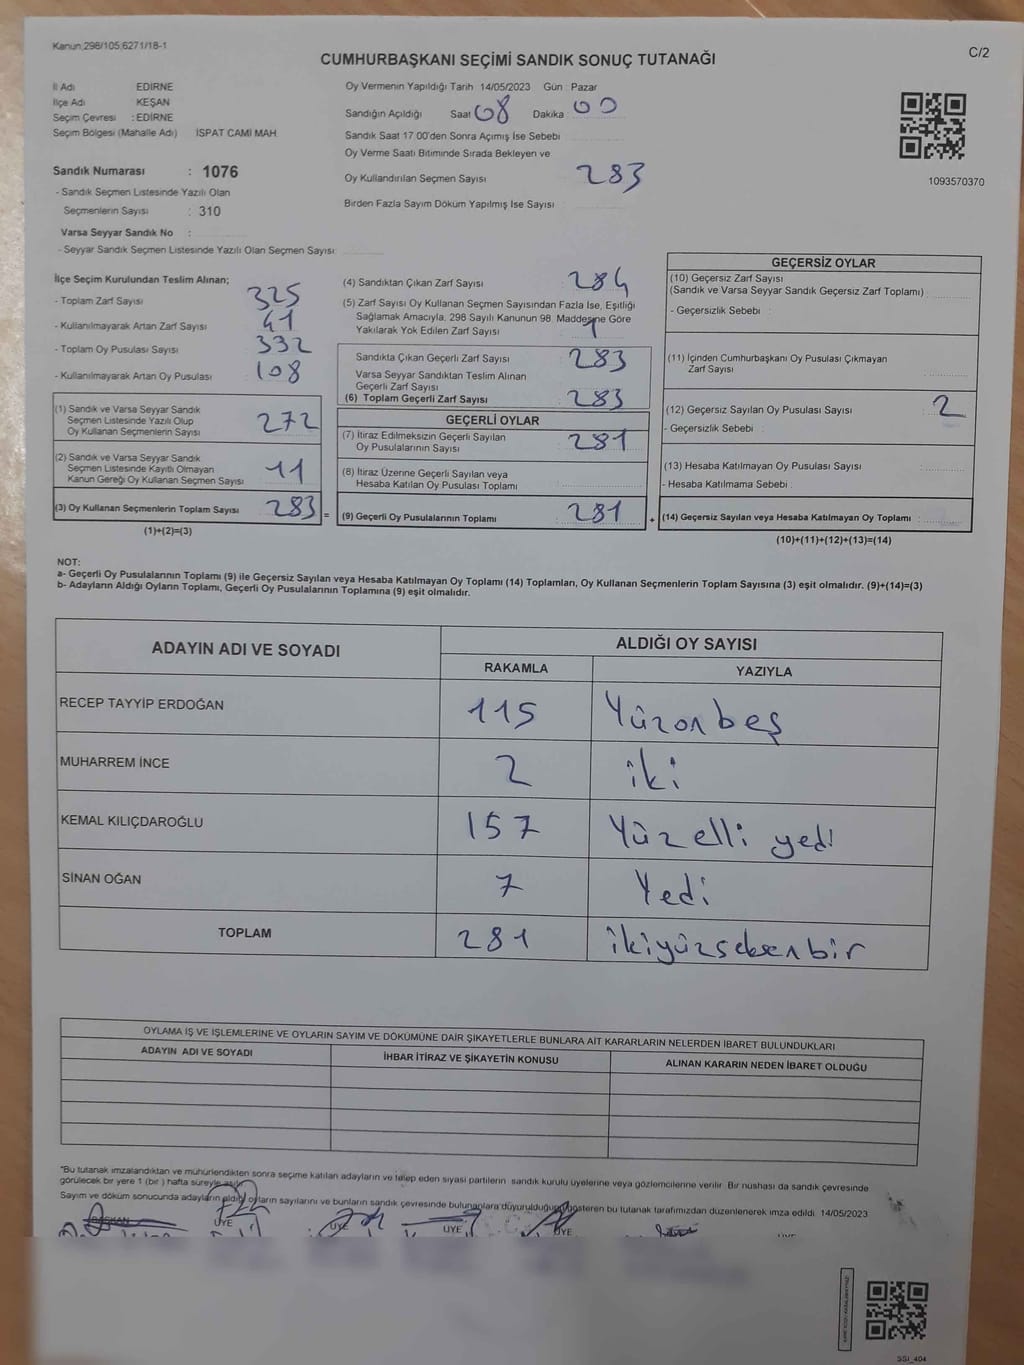 Kanun;298/105;6271/18-1
C/2
CUMHURBAŞKANI SEÇİMİ SANDIK SONUÇ TUTANAĞI
İl Adı EDİRNE
İlçe Adı KEŞAN
Seçim Çevresi : EDİRNE
Seçim Bölgesi (Mahalle Adı) İSPAT CAMİ MAH.
Sandık Numarası : 1076
- Sandık Seçmen Listesinde Yazılı Olan
Seçmenlerin Sayısı : 310
Varsa Seyyar Sandık No :
- Seyyar Sandık Seçmen Listesinde Yazılı Olan Seçmen Sayısı:
Oy Vermenin Yapıldığı Tarih 14/05/2023 Gün : Pazar
Sandığın Açıldığı Saat 08 Dakika : 00
Sandık Saat 17.00'den Sonra Açımış İse Sebebi
Oy Verme Saati Bitiminde Sırada Bekleyen ve
Oy Kullandırılan Seçmen Sayısı 283
Birden Fazla Sayım Döküm Yapılmış İse Sayısı
1093570370
İlçe Seçim Kurulundan Teslim Alınan;
- Toplam Zarf Sayısı 325
- Kullanılmayarak Artan Zarf Sayısı 41
- Toplam Oy Pusulası Sayısı 332
- Kullanılmayarak Artan Oy Pusulası 108
(1) Sandık ve Varsa Seyyar Sandık
Seçmen Listesinde Yazılı Olup
Oy Kullanan Seçmenlerin Sayısı 272
(2) Sandık ve Varsa Seyyar Sandık
Seçmen Listesinde Kayıtlı Olmayan
Kanun Gereği Oy Kullanan Seçmen Sayısı 11
(3) Oy Kullanan Seçmenlerin Toplam Sayısı 283 =
(1)+(2)=(3)
(4) Sandıktan Çıkan Zarf Sayısı 284
(5) Zarf Sayısı Oy Kullanan Seçmen Sayısından Fazla İse, Eşitliği
Sağlamak Amacıyla, 298 Sayılı Kanunun 98. Maddesine Göre
Yakılarak Yok Edilen Zarf Sayısı 1
Sandıkta Çıkan Geçerli Zarf Sayısı 283
Varsa Seyyar Sandıktan Teslim Alınan
Geçerli Zarf Sayısı
(6) Toplam Geçerli Zarf Sayısı 283
GEÇERLİ OYLAR
(7) İtiraz Edilmeksizin Geçerli Sayılan
Oy Pusulalarının Sayısı 281
(8) İtiraz Üzerine Geçerli Sayılan veya
Hesaba Katılan Oy Pusulası Toplamı
(9) Geçerli Oy Pusulalarının Toplamı 281 +
GEÇERSİZ OYLAR
(10) Geçersiz Zarf Sayısı
(Sandık ve Varsa Seyyar Sandık Geçersiz Zarf Toplamı)
- Geçersizlik Sebebi :
(11) İçinden Cumhurbaşkanı Oy Pusulası Çıkmayan
Zarf Sayısı
(12) Geçersiz Sayılan Oy Pusulası Sayısı 2
- Geçersizlik Sebebi :
(13) Hesaba Katılmayan Oy Pusulası Sayısı
- Hesaba Katılmama Sebebi :
(14) Geçersiz Sayılan veya Hesaba Katılmayan Oy Toplamı :
(10)+(11)+(12)+(13)=(14)
NOT:
a- Geçerli Oy Pusulalarının Toplamı (9) ile Geçersiz Sayılan veya Hesaba Katılmayan Oy Toplamı (14) Toplamları, Oy Kullanan Seçmenlerin Toplam Sayısına (3) eşit olmalıdır. (9)+(14)=(3)
b- Adayların Aldığı Oyların Toplamı, Geçerli Oy Pusulalarının Toplamına (9) eşit olmalıdır.
ADAYIN ADI VE SOYADI ALDIĞI OY SAYISI
RAKAMLA YAZIYLA
RECEP TAYYİP ERDOĞAN 115 Yüzonbeş
MUHARREM İNCE 2 iki
KEMAL KILIÇDAROĞLU 157 Yüzelli yedi
SİNAN OĞAN 7 Yedi
TOPLAM 281 ikiyüzseksenbir
OYLAMA İŞ VE İŞLEMLERİNE VE OYLARIN SAYIM VE DÖKÜMÜNE DAİR ŞİKAYETLERLE BUNLARA AİT KARARLARIN NELERDEN İBARET BULUNDUKLARI
ADAYIN ADI VE SOYADI İHBAR İTİRAZ VE ŞİKAYETİN KONUSU ALINAN KARARIN NEDEN İBARET OLDUĞU
*Bu tutanak imzalandıktan ve mühürlendikten sonra seçime katılan adayların ve talep eden siyasi partilerin sandık kurulu üyelerine veya gözlemcilerine verilir. Bir nüshası da sandık çevresinde
görülecek bir yere 1 (bir ) hafta süreyle asılır.
Sayım ve döküm sonucunda adayların aldığı oyların sayılarını ve bunların sandık çevresinde bulunanlara duyurulduğunu gösteren bu tutanak tarafımızdan düzenlenerek imza edildi. 14/05/2023
BAŞKAN ÜYE ÜYE ÜYE ÜYE ÜYE
SSI_404